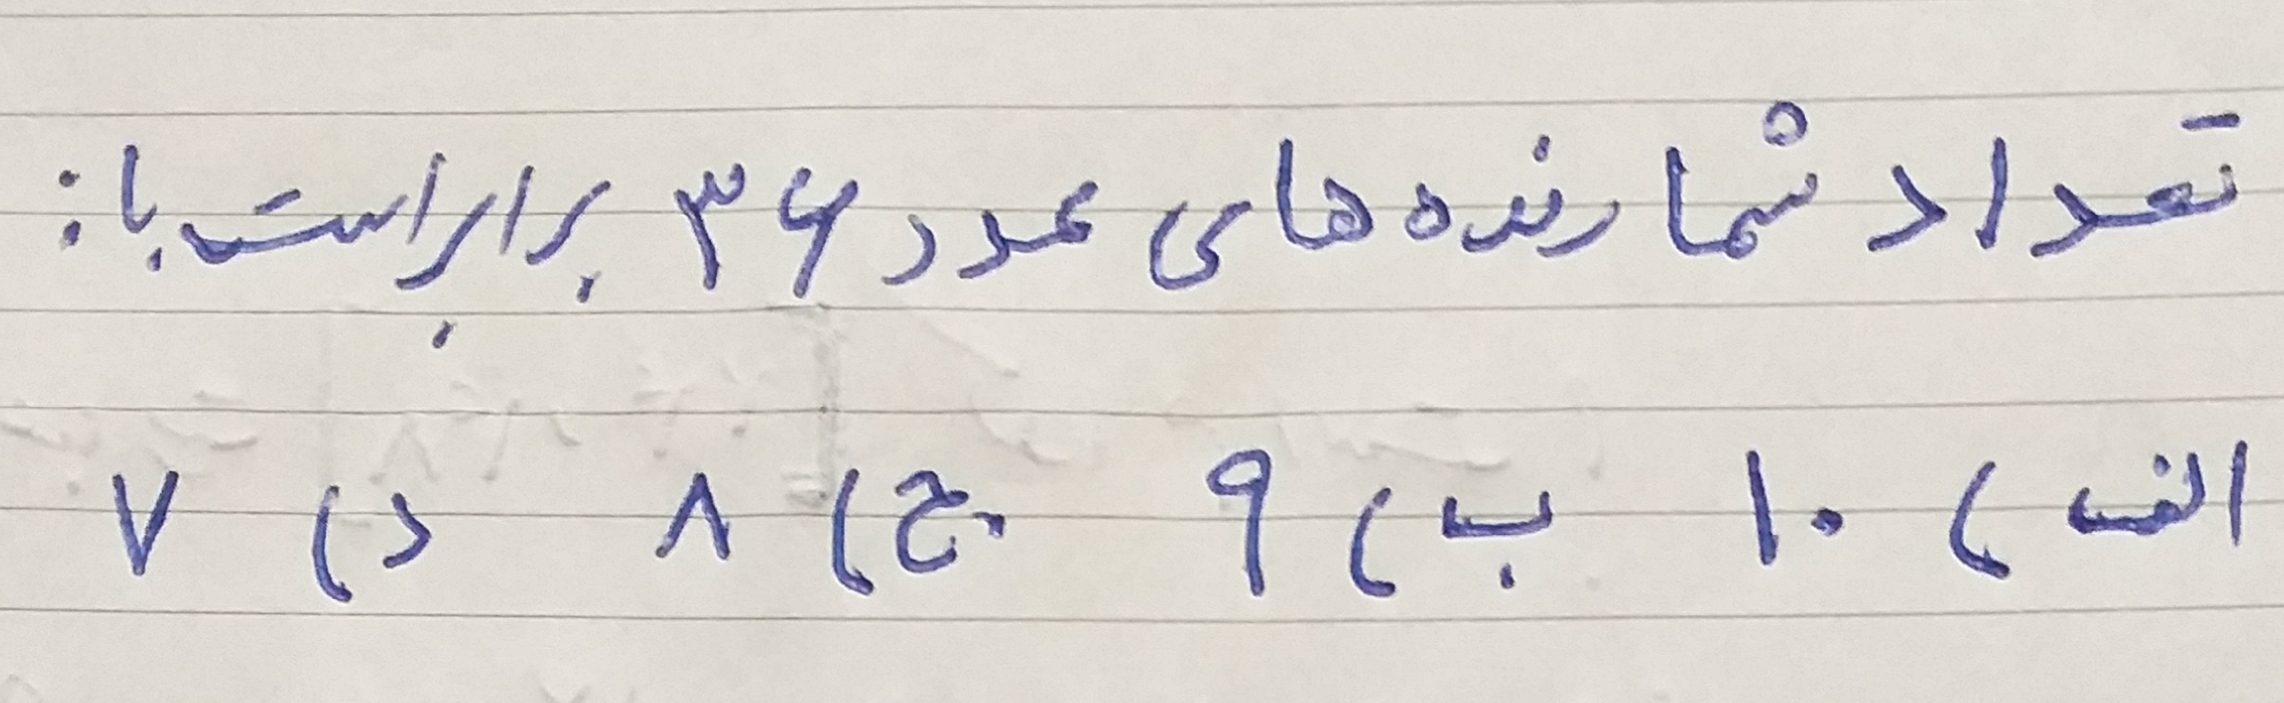 تعداد شمارنده های عدد ۳۶ برابر است با:
الف) ۱۰ ب) ۹ ج) ۸ د) ۷